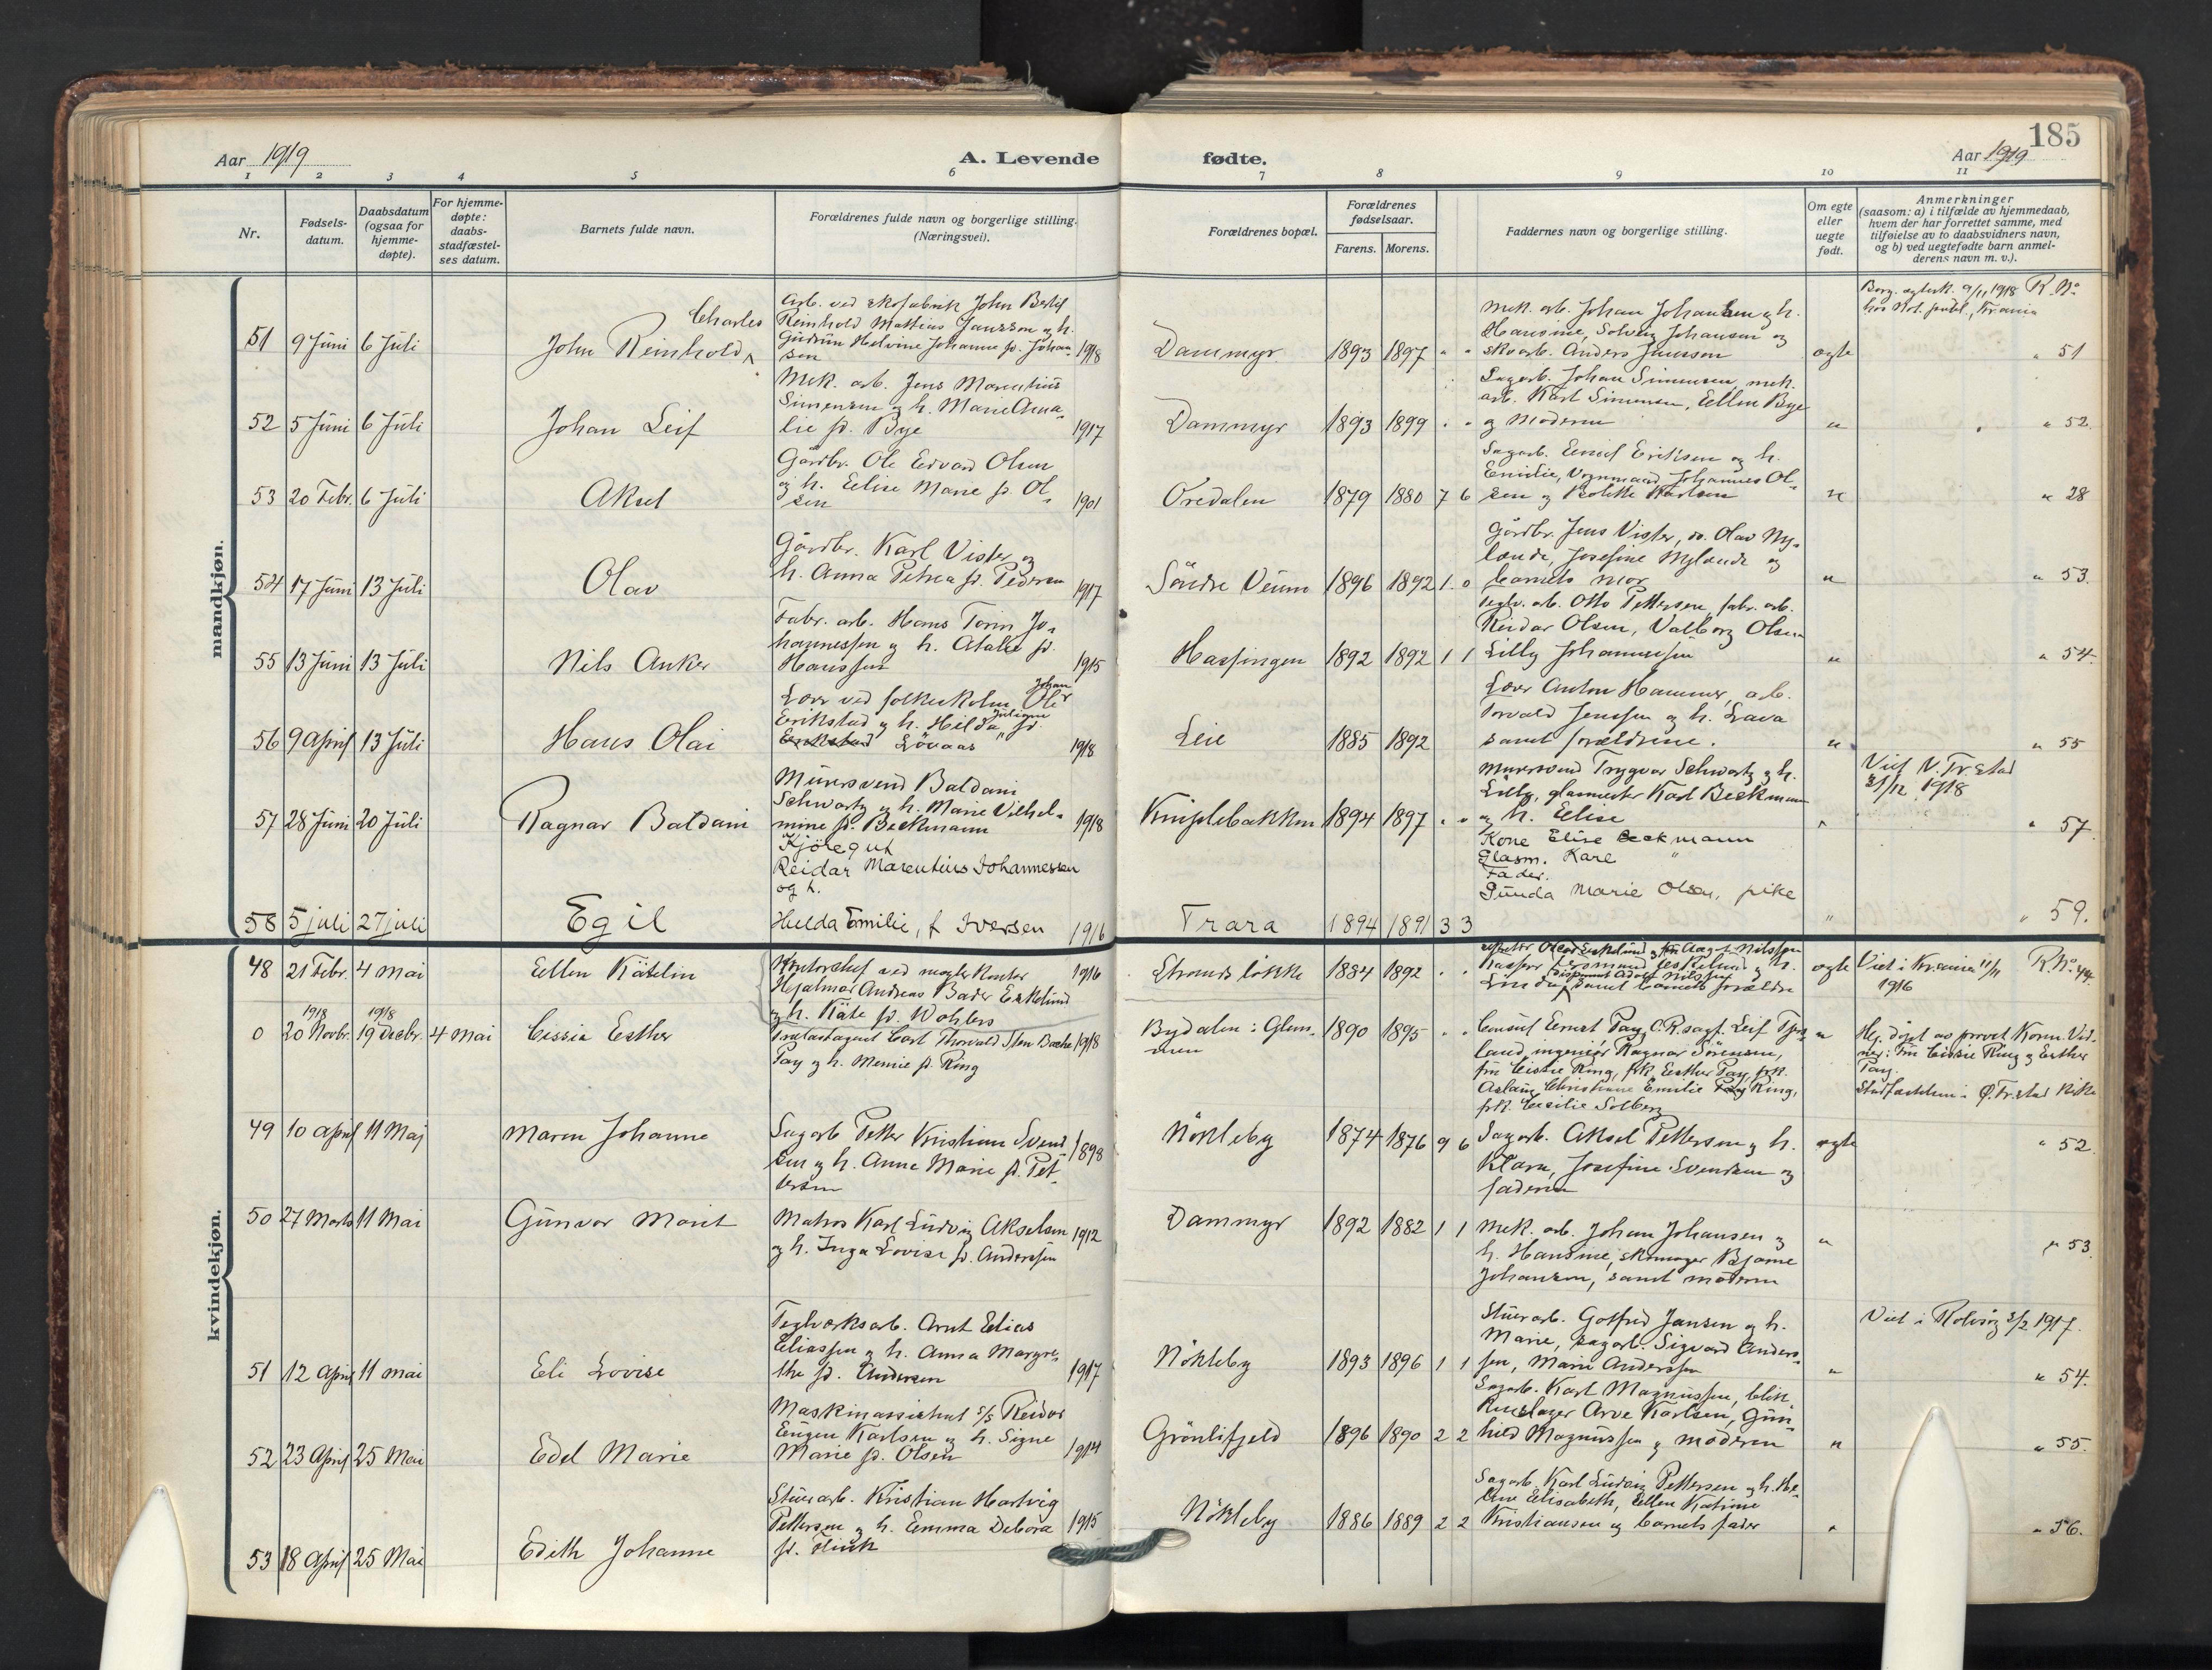 185
Aar 1919
A. Levende
fødte.
Aar 1919
1 2 3 4 5 6 7 8 9 10 11
Nr.
Fødsels-
datum.
Daabsdatum
(ogsaa for
hjemme-
døpte).
For hjemme-
døpte:
daabs-
stadfæstel-
ses datum.
Barnets fulde navn.
Forældrenes fulde navn og borgerlige stilling.
(Næringsvei).
Forældrenes bopæl.
Forældrenes
fødselsaar.
Farens. Morens.
Faddernes navn og borgerlige stilling.
Om egte
eller
uegte
født.
Anmerkninger
(saasom: a) i tilfælde av hjemmedaab,
hvem der har forrettet samme, med
tilføielse av to daabsvidners navn,
og b) ved uegtefødte barn anmel-
derens navn m. v.).
mandkjøn.
51 9 Juni 6 Juli
Charles
John Reinhold
Arb. ved skofabrik John Bertil
Reinhold Mathias Jansson og h.
Gudrun Helvine Johanne fd. Johan-
sen 1918
Dammyr 1893 1897 " "
Mek. arb. Johan Johansen og h.
Hansine, Solveig Johansen og
skoarb. Anders Jansson
egte
Borg. egtesk. 9/11 1918 R. No.
hos Not. publ., Kr.ania
" 51
52 5 Juni 6 Juli
Johan Leif
Mek. arb. Jens Marentius
Simensen og h. Marie Ama-
lie fd. Bye 1917
Dammyr 1893 1899 " "
Sagarb. Johan Simensen, mek.
arb. Karl Simensen, Ellen Bye
og moderen
" " 52.
53 20 Febr. 6 Juli
Aksel
Gårdbr. Ole Edvard Olsen
og h. Elise Marie fd. Ol-
sen 1901
Oredalen 1879 1880 7 6
Sagarb. Emil Eriksen og h.
Emilie, Vognmand Johannes Ol-
sen og Karlsen
" " 28
54 17 Juni 13 Juli
Olav
Gårdbr. Karl Vister og
h. Anna Petrea fd. Pedersen 1917
Söndre Veum 1896 1892 1 0
Gårdbr. Jens Vister, do. Olav Ny-
lænde, Josefine Nylænde og
barnets mor
" " 53.
55 13 Juni 13 Juli
Nils Anker
Fabr. arb. Hans Torin Jo-
hannessen og h. fd.
Hanssen 1915
Hassingen 1892 1892 1 1
Teglv. arb. Otto Pettersen, fabr. arb.
Reidar Olsen, Valborg Olsen
Lilly Johannessen
" " 54.
56 9 April 13 Juli
Hans Olai
Lærer ved folkeskolen Ole Johan
Erikstad og h. Hilda Juliane fd.
Erikstad Lövaas 1918
Leie 1885 1892
Lærer Anton Hammer, arb.
Torvald Jenssen og h. Lava
samt forældrene.
" " 55
57 28 Juni 20 Juli
Ragnar Baldani
Murersvend Baldani
Schwartz og h. Marie Vilhel-
mine fd. Beckmann 1918
Kniplebakken 1894 1897 " "
Murersvend Trygvar Schwartz og h.
Lilly, glasmester Karl Beckmann
og h. Elise
Viet V. Fr.stad
31/12 1918
" " 57.
58 5 juli 27 juli
Egil
Kjöregut
Reidar Marentius Johannessen
og h.
Hulda Emilie, f. Iversen 1916
Trara 1894 1891 3 3
Kone Elise Beckmann
Glasm. Karl "
Fader.
Gunda Marie Olsen, pike
" " 59.
kvindekjøn.
48 21 Febr. 4 Mai
Ellen Kätelin
Kontorchef ved megler kontor 1916
Hjalmar Andreas Bader Eskelund
og h. Käte fd. Wohlers
Strands løkke 1884 1892 " "
Kasper Eskelund og h.
disponent Adolf Nilssen
samt barnets forældre
egte
Viet i Kr.ania 11/11
1916
R. No. 44.
0 1918 20 Novbr. 1918 19 Decbr. 4 Mai
Cissie Esther
Trælastagent Carl Thorvald Sten Bache 1918
Pay og h. Mennie fd. Ring
Bydalen i Glem-
men 1890 1895 " "
Consul Ernst Pay, O.R.sagf. Leif
land, ingeniør Ragnar Sörensen,
fru Cissie Ring, frk. Esther Pay, frk.
Aslaug Christiane Emilie Pay Ring,
frk. Cecilie Solberg
"
Hj. døpt av provst Koren. Vid-
ner: Fru Cissie Ring og Esther
Pay.
Stadfæstelsen i Ø. Fr.stad kirke
49 10 April 11 Maj
Maren Johanne
Sagarb Petter Kristian Svend-
sen og h. Anne Marie fd. Pet-
tersen 1898
Nökleby 1874 1876 9 6
Sagarb. Aksel Pettersen og h.
Klara, Josefine Svendsen og
faderen
egte " 52.
50 27 Marts 11 Mai
Gunvor Marit
Matros Karl Ludvig Akselsen 1912
og h. Inga Lovise fd. Anderssen
Dammyr 1892 1882 1 1
Mek. arb. Johan Johansen og
h. Hansine, skomager Bjarne
Johansen, samt moderen
" " 53.
51 12 April 11 mai
Eli Lovise
Teglverksarb. Arnt Elias
Eliassen og h. Anna Margre-
the fd. Andersen 1917
Nökleby 1893 1896 1 1
Stuerarb. Gotfred Jansen og h.
Marie, sagarb. Sigvard Anders-
sen, Marie Anderssen
"
Viet i Rolvsøy 3/2 1917.
" 54.
52 23 April 25 Mai
Edel Marie
Maskinassistent s/s Reidar
Eugen Karlsen og h. Signe
Marie fd. Olsen 1914
Grönlifjeld 1896 1890 2 2
Sagarb. Karl Magnussen, blik-
kenslager Arve Karlsen, Gun-
hild Magnussen og moderen
" " 55.
53 18 April 25 Mai
Edith Johanne
Stuerarb. Kristian Hartvig
Pettersen og h. Emma Debora 1915
fd. Flink
Nökleby 1886 1889 2 2
Sagarb. Karl Ludvig Pettersen og h. He-
lene Elisabeth, Ellen Katrine
Kristiansen og barnets fader
" " 56.